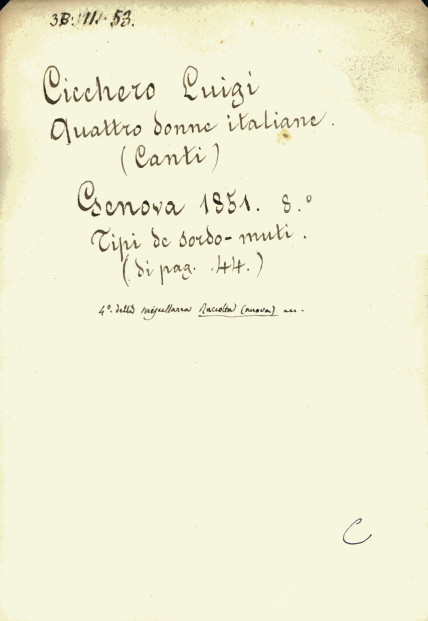 3B. III. 53.
Cicchero Luigi
Quattro donne italiane.
(Canti)
Genova 1851. 8.°
Tipi de sordo-muti.
(di pag. 44.)
4°. della miscellanea Raccolta (nuova) ...
C